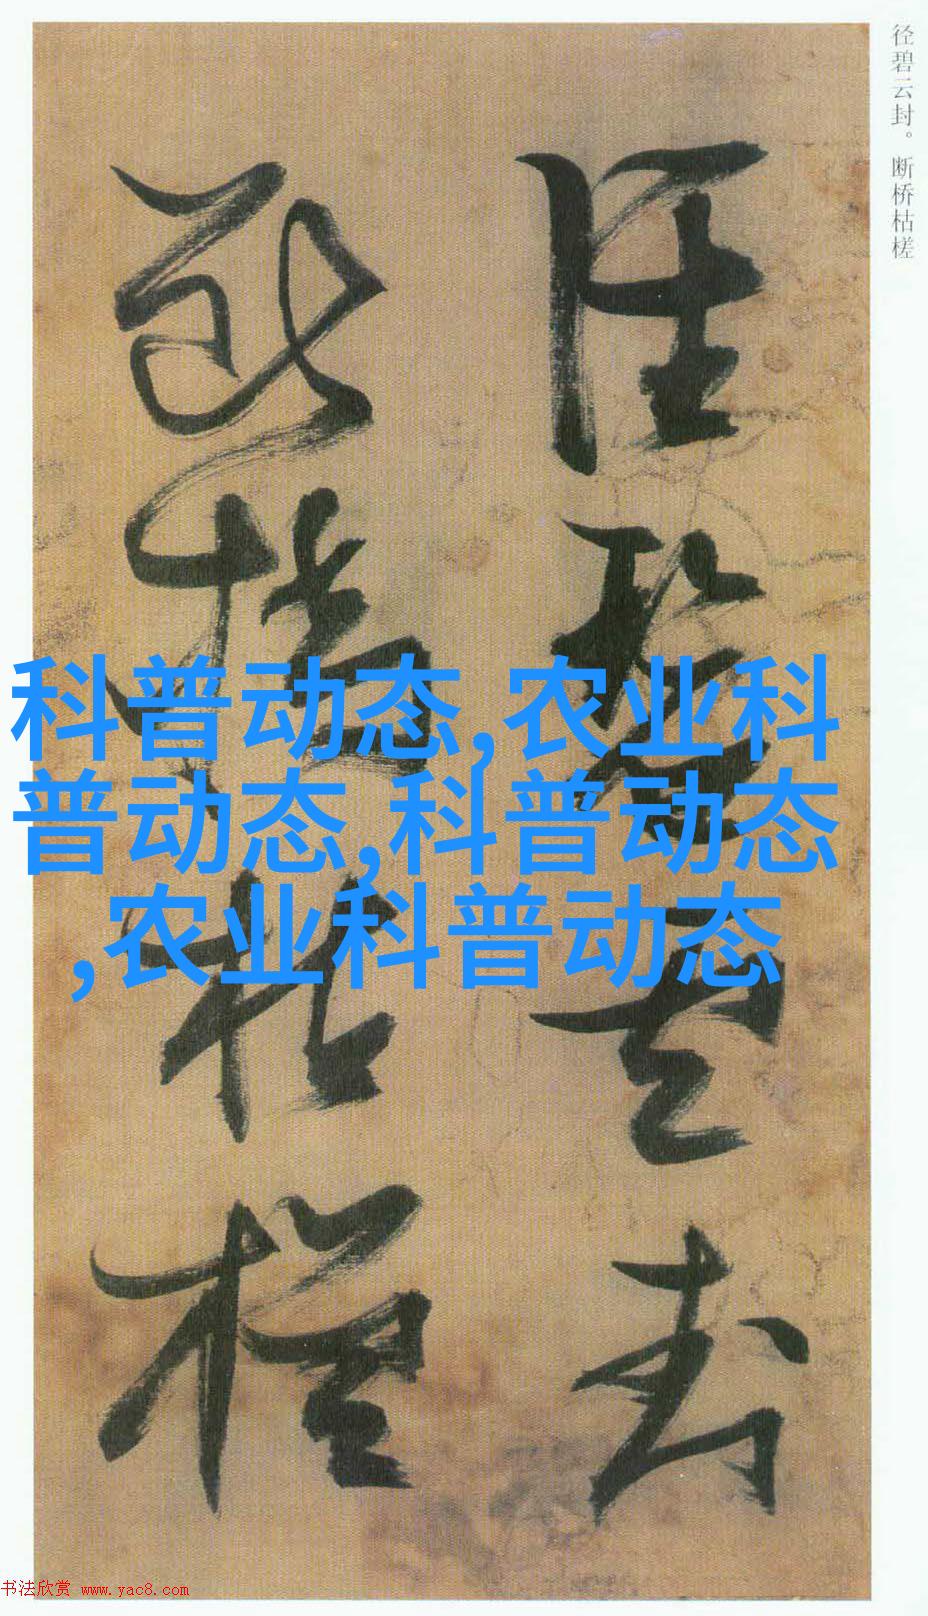 径碧云封。断桥枯槎
径碧云封
断桥枯槎
科普动态,农业科
普动态,科普动态
,农业科普动态
书法欣赏 www.yac8.com